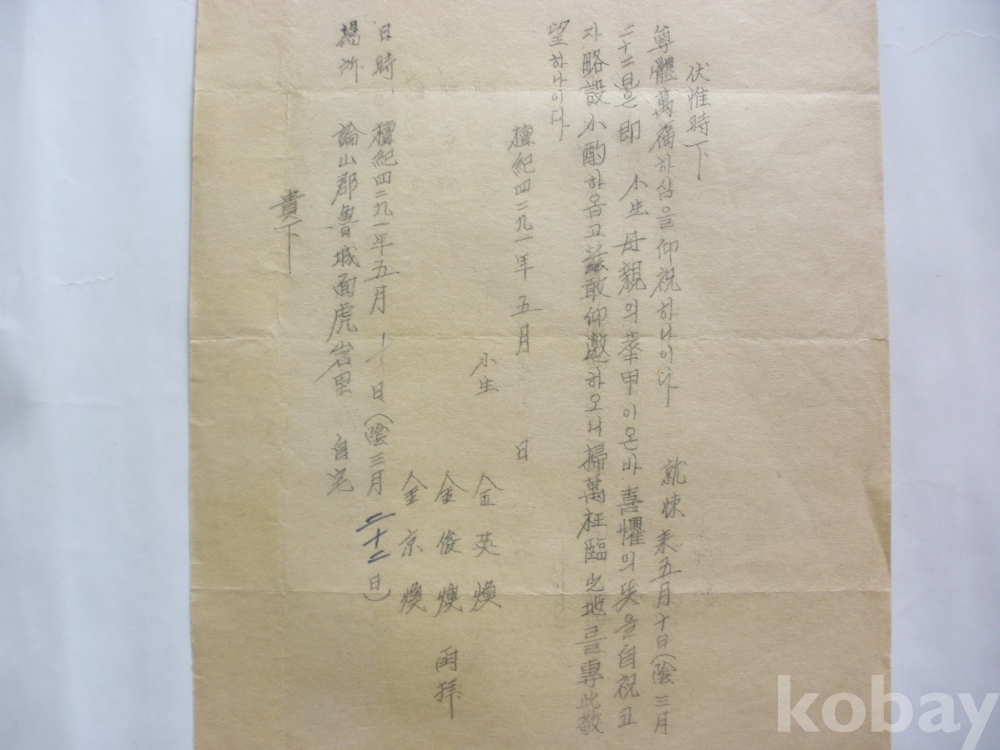 伏惟時下
尊體萬福하심을 仰祝하나이다 就悚來五月十日(陰三月
二十二日)은 即 小生母親의 華甲이온바 喜懼의 뜻을 自祝코
자 略設小酌하옵고 茲敢仰邀하오니 掃萬枉臨之地를 專此敬
望하나이다
檀紀四二九一年 五月 日
小生 金英煥
金俊煥 再拜
金京煥
日時 檀紀四二九一年五月 十日(陰三月 二十二日)
場所 論山郡魯城面虎岩里 自宅
貴下
kobay